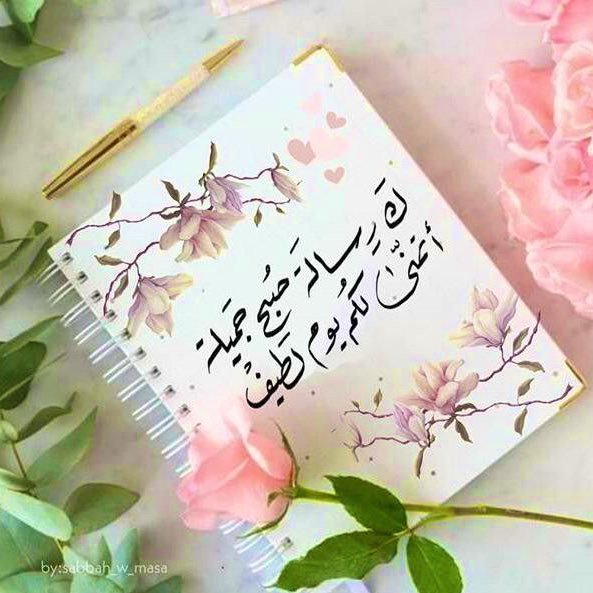 كَ رِسالة صُبح جَميلة
أتمنىٰ لكُم يوم لطيفْ
by:sabbah_w_masa